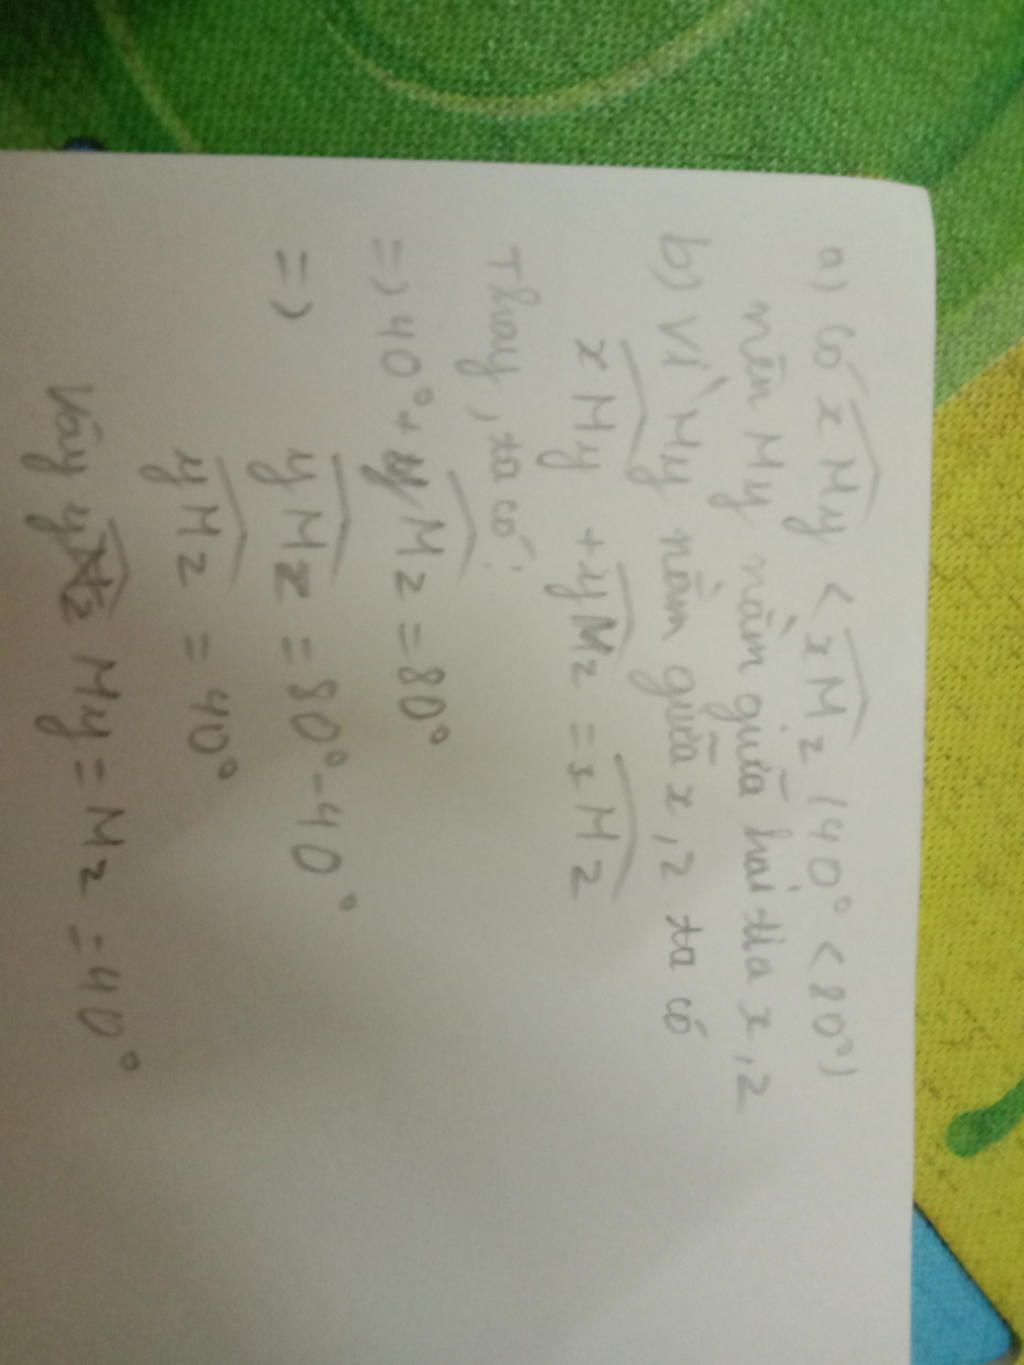 a) Có xMy < xMz (40° < 80°)
nên My nằm giữa hai tia x, z
b) Vì My nằm giữa x, z ta có
xMy + yMz = xMz
Thay, ta có:
=> 40° + yMz = 80°
=> yMz = 80° - 40°
yMz = 40°
Vây My = Mz = 40°